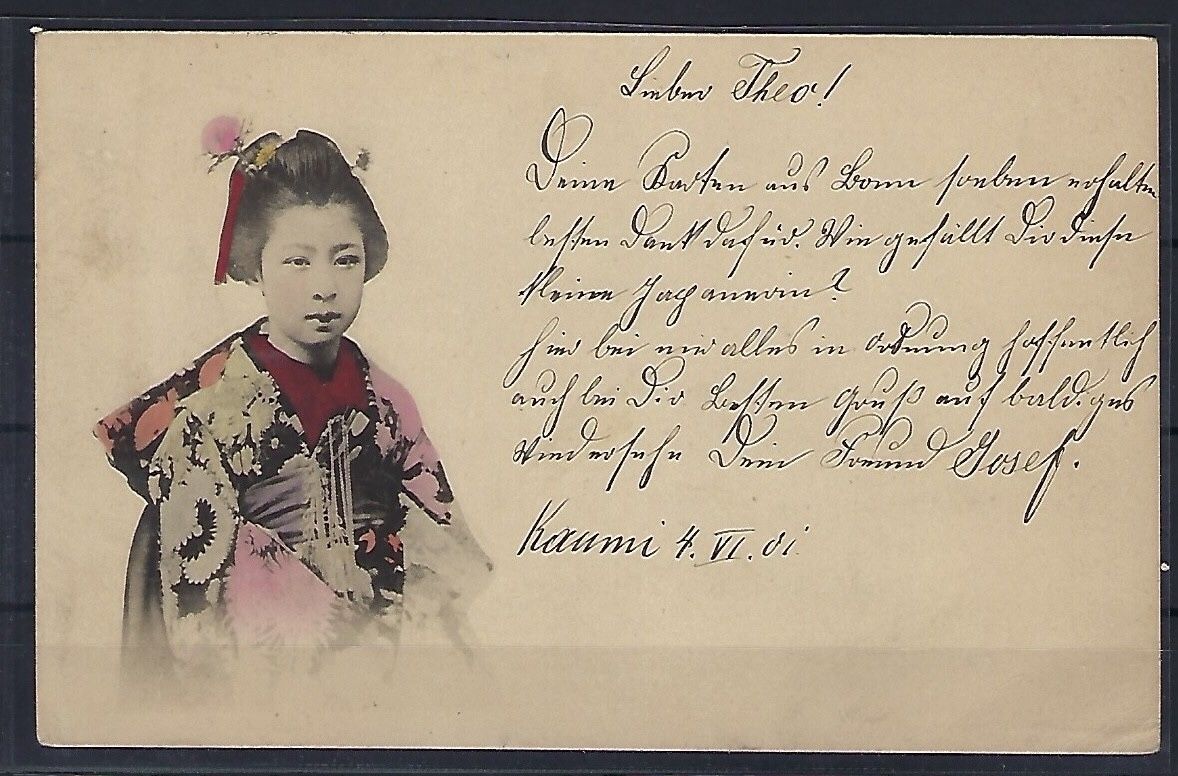 Lieber Theo!
Deine Karten aus Bonn soeben erhalten
besten Dank dafür. Wie gefällt Dir diese
kleine Japanerin?
hier bei mir alles in Ordnung hoffentlich
auch bei Dir Besten Gruß auf baldiges
Wiedersehn Dein Freund Josef.
Kaumi 4. VI. 01